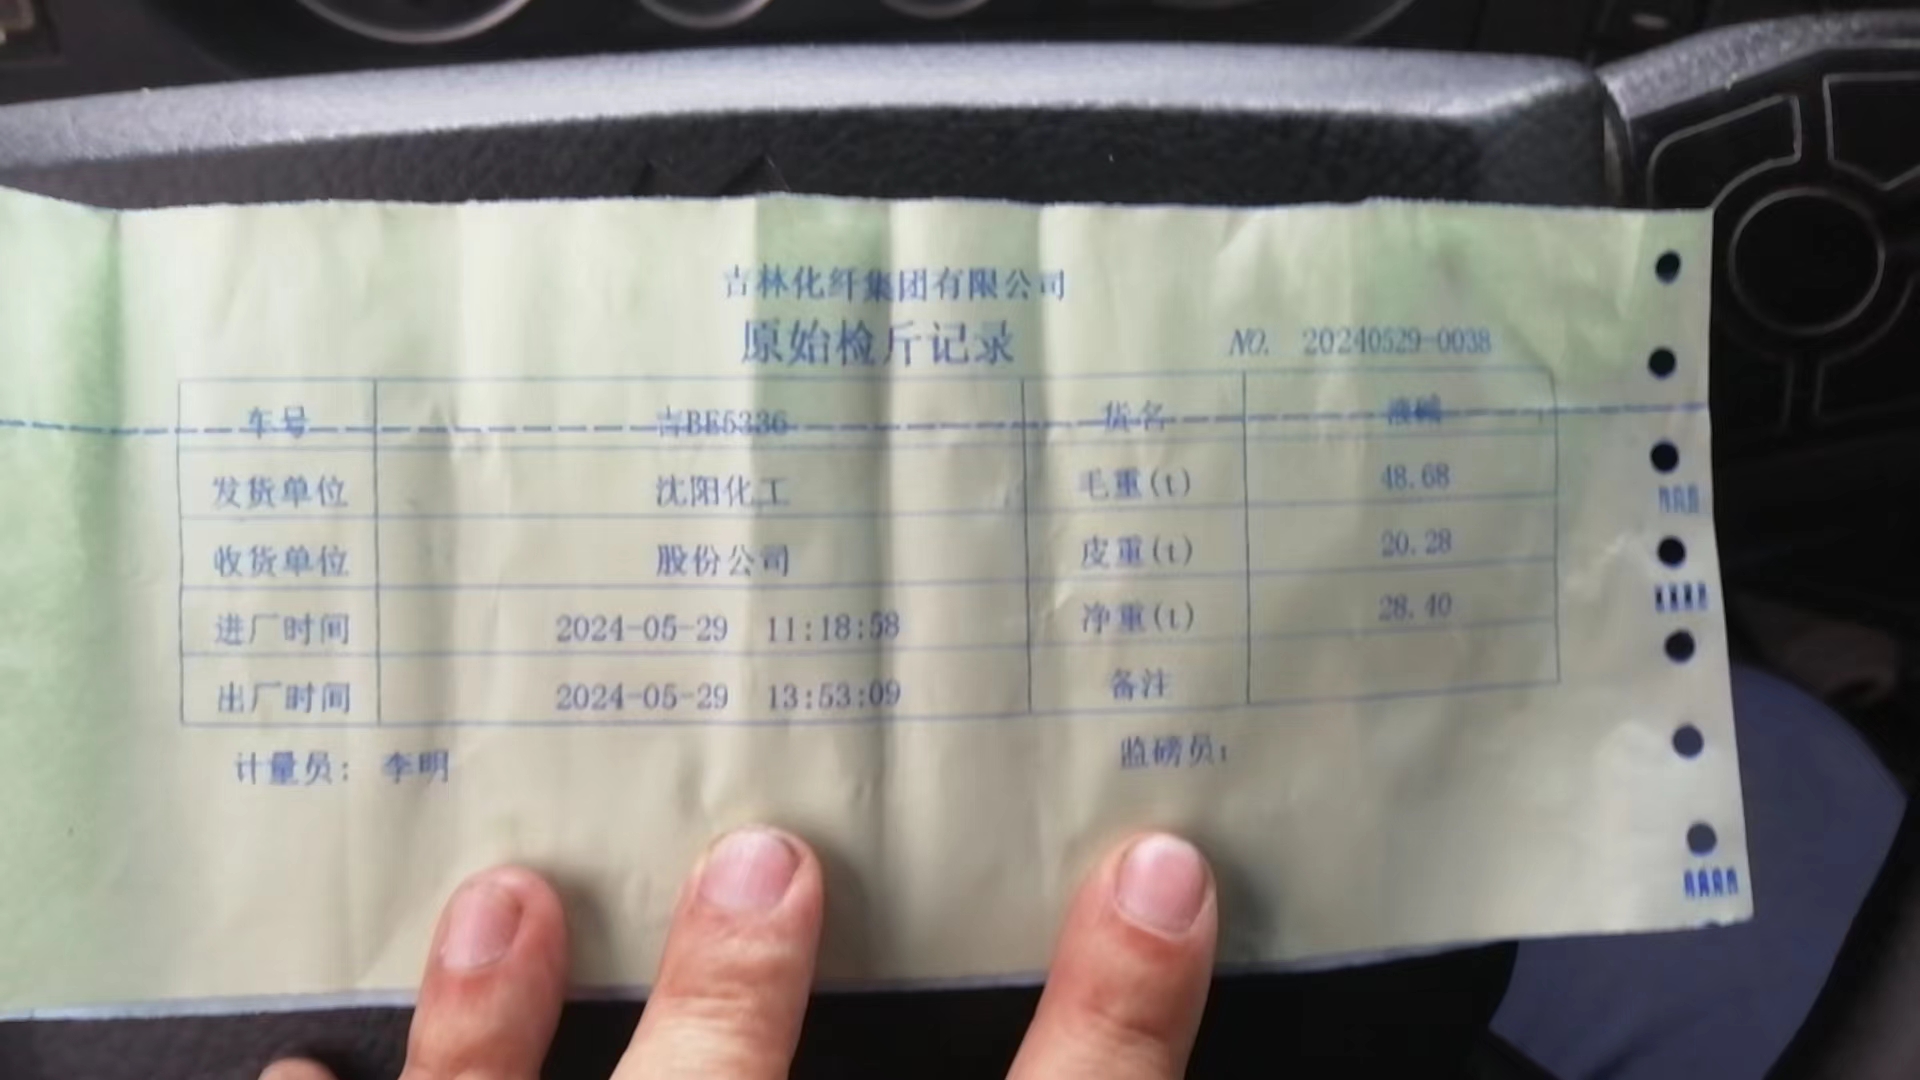 吉林化纤集团有限公司
原始检斤记录 NO. 20240529-0038
车号 吉BE5336 货名 液碱
发货单位 沈阳化工 毛重(t) 48.68
收货单位 股份公司 皮重(t) 20.28
进厂时间 2024-05-29 11:18:58 净重(t) 28.40
出厂时间 2024-05-29 13:53:09 备注
计量员: 李明 监磅员: